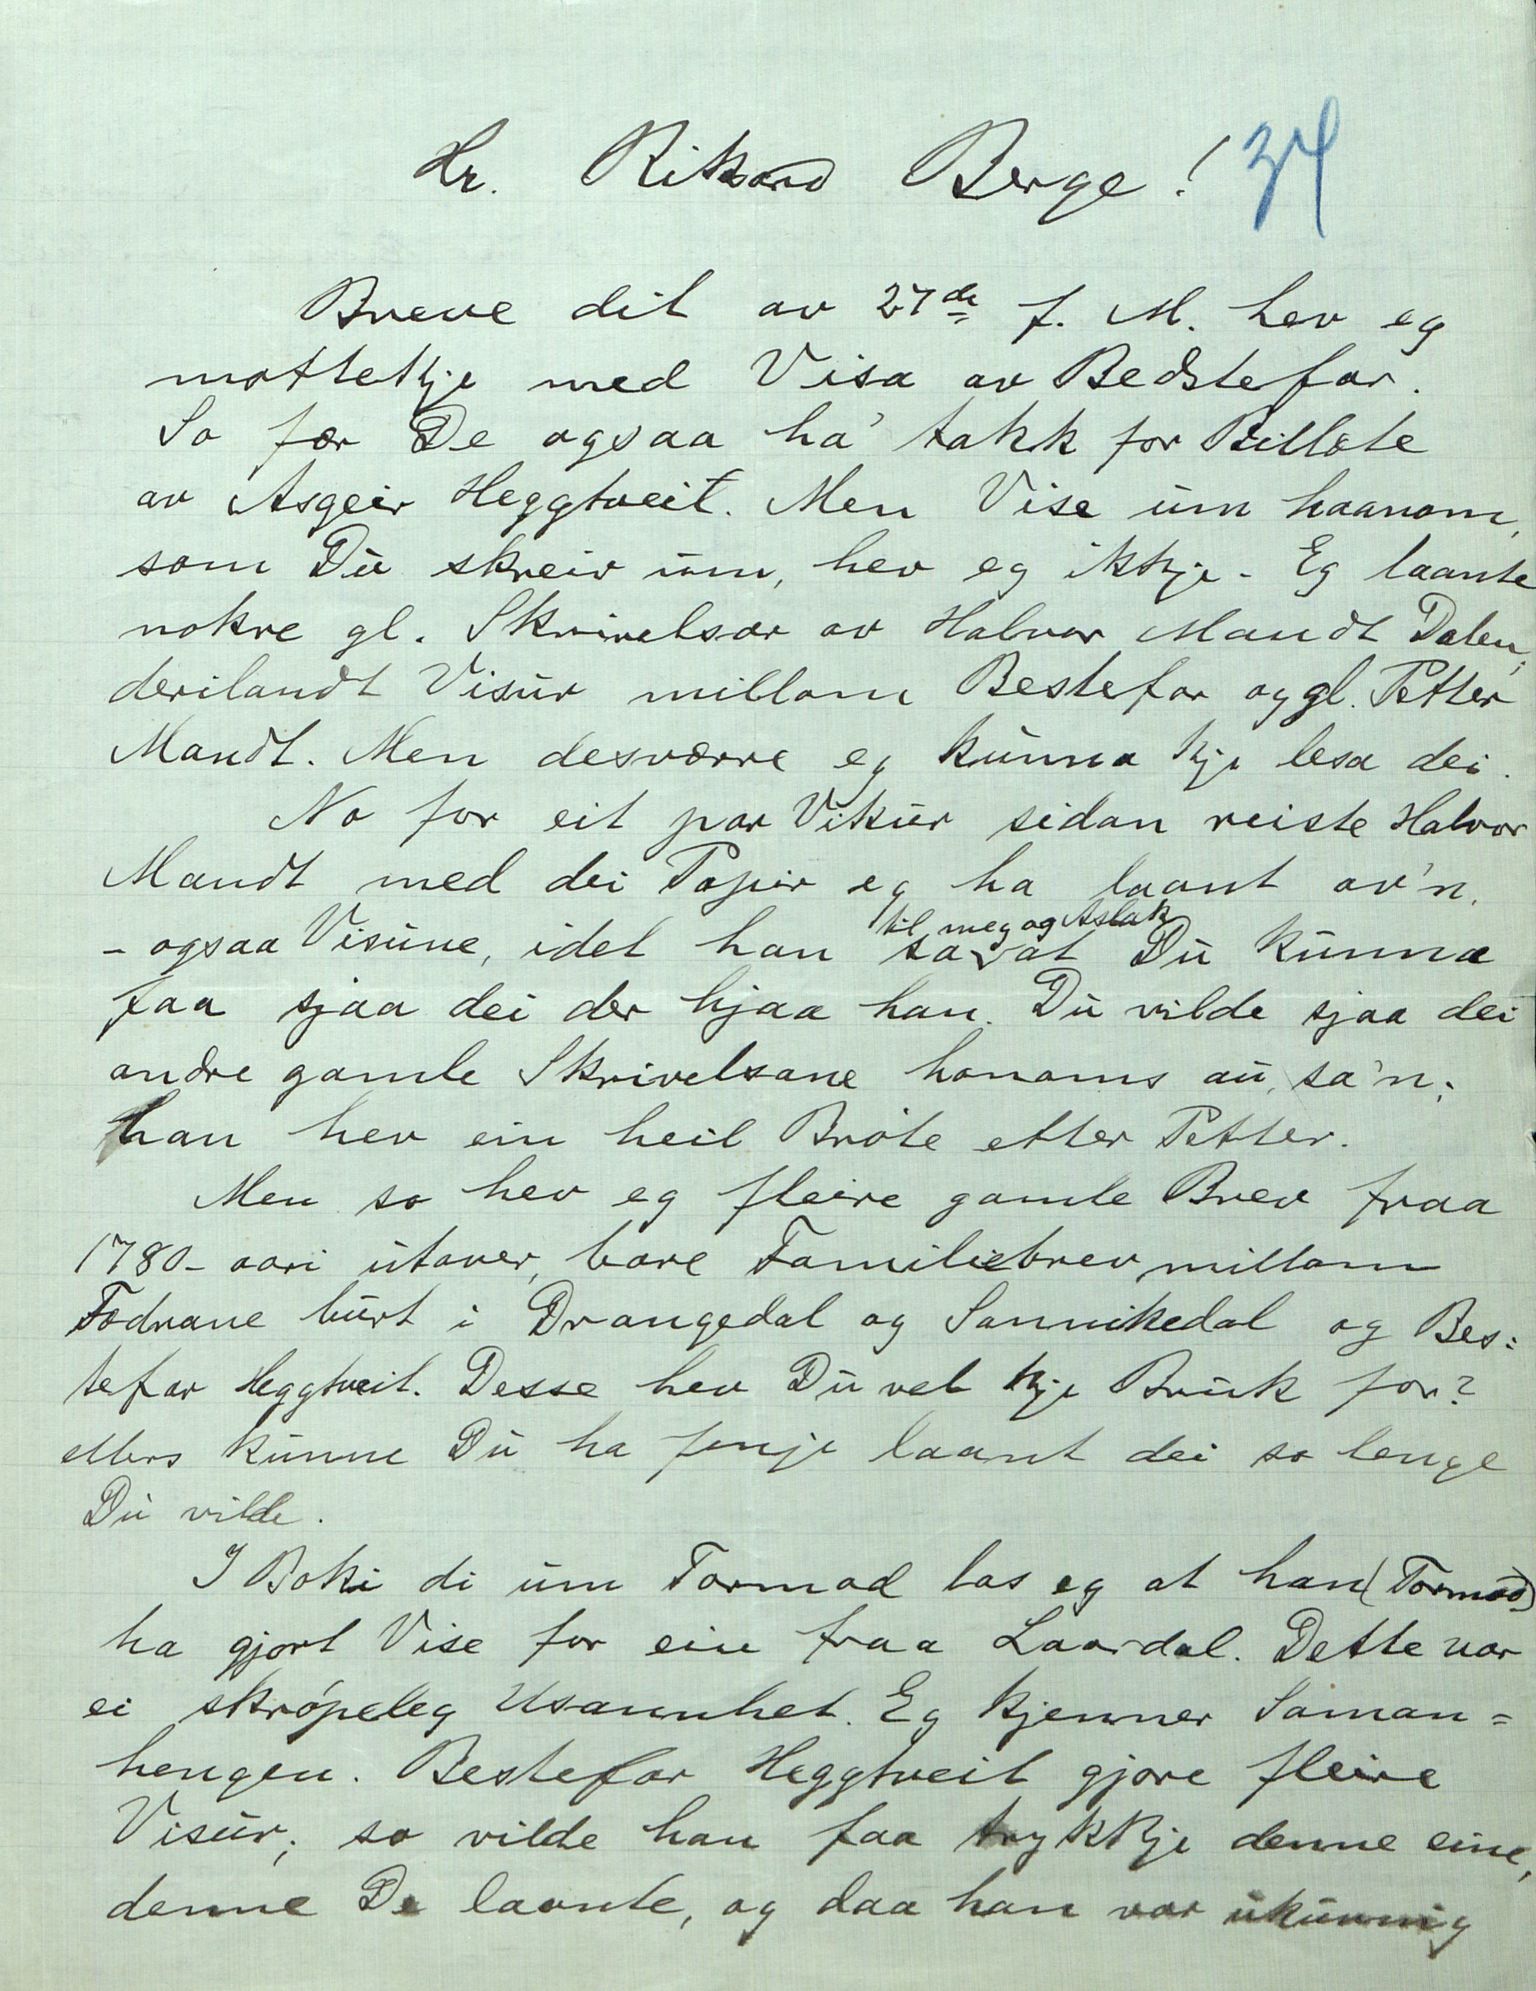 Hr. Rikard Berge! 34
Breve dit av 27de f. M. hev eg
mottekje med Visa av Bedstefar.
So fær De ogsaa ha' takk for Billete
av Asgeir Heggtveit. Men Vise um haanom,
som Du skreiv um, hev eg ikkje. Eg laante
nokre gl. Skrivelsar av Halvor Mandt Dalen,
deriländt Visur millom Bestefar og gl. Petter
Mandt. Men desværre eg kunna kje lesa dei.
No for eit par Vikur sidan reiste Halvor
Mandt med dei Papir eg ha laant av'n,
til meg og Aslak
- ogsaa Visune, idet han sa at Du kunna
faa sjaa dei der hjaa han. Du vilde sjaa dei
andre gamle Skrivelsane honoms au, sa'n;
han hev ein heil Bròte etter Petter.
Men so hev eg fleire gamle Brev fraa
1780-aari utover, bare Familiebrev millom
Fedrane burt i Drangedal og Sannikedal og Bes=
tefar Heggtveit. Desse hev Du vel kje Bruk for?
ellers kunne Du ha fenje laant dei so lenge
Du vilde.
I Boki di um Tormod las eg at han (Tormod)
ha gjort Vise for ein fraa Laardal. Dette var
ei skrópeleg Usannhet. Eg kjenner Saman=
hengen. Bestefar Heggtveit gjore fleire
Visur; so vilde han faa trykkje denne eine,
denne De laante, og daa han var ukunnig